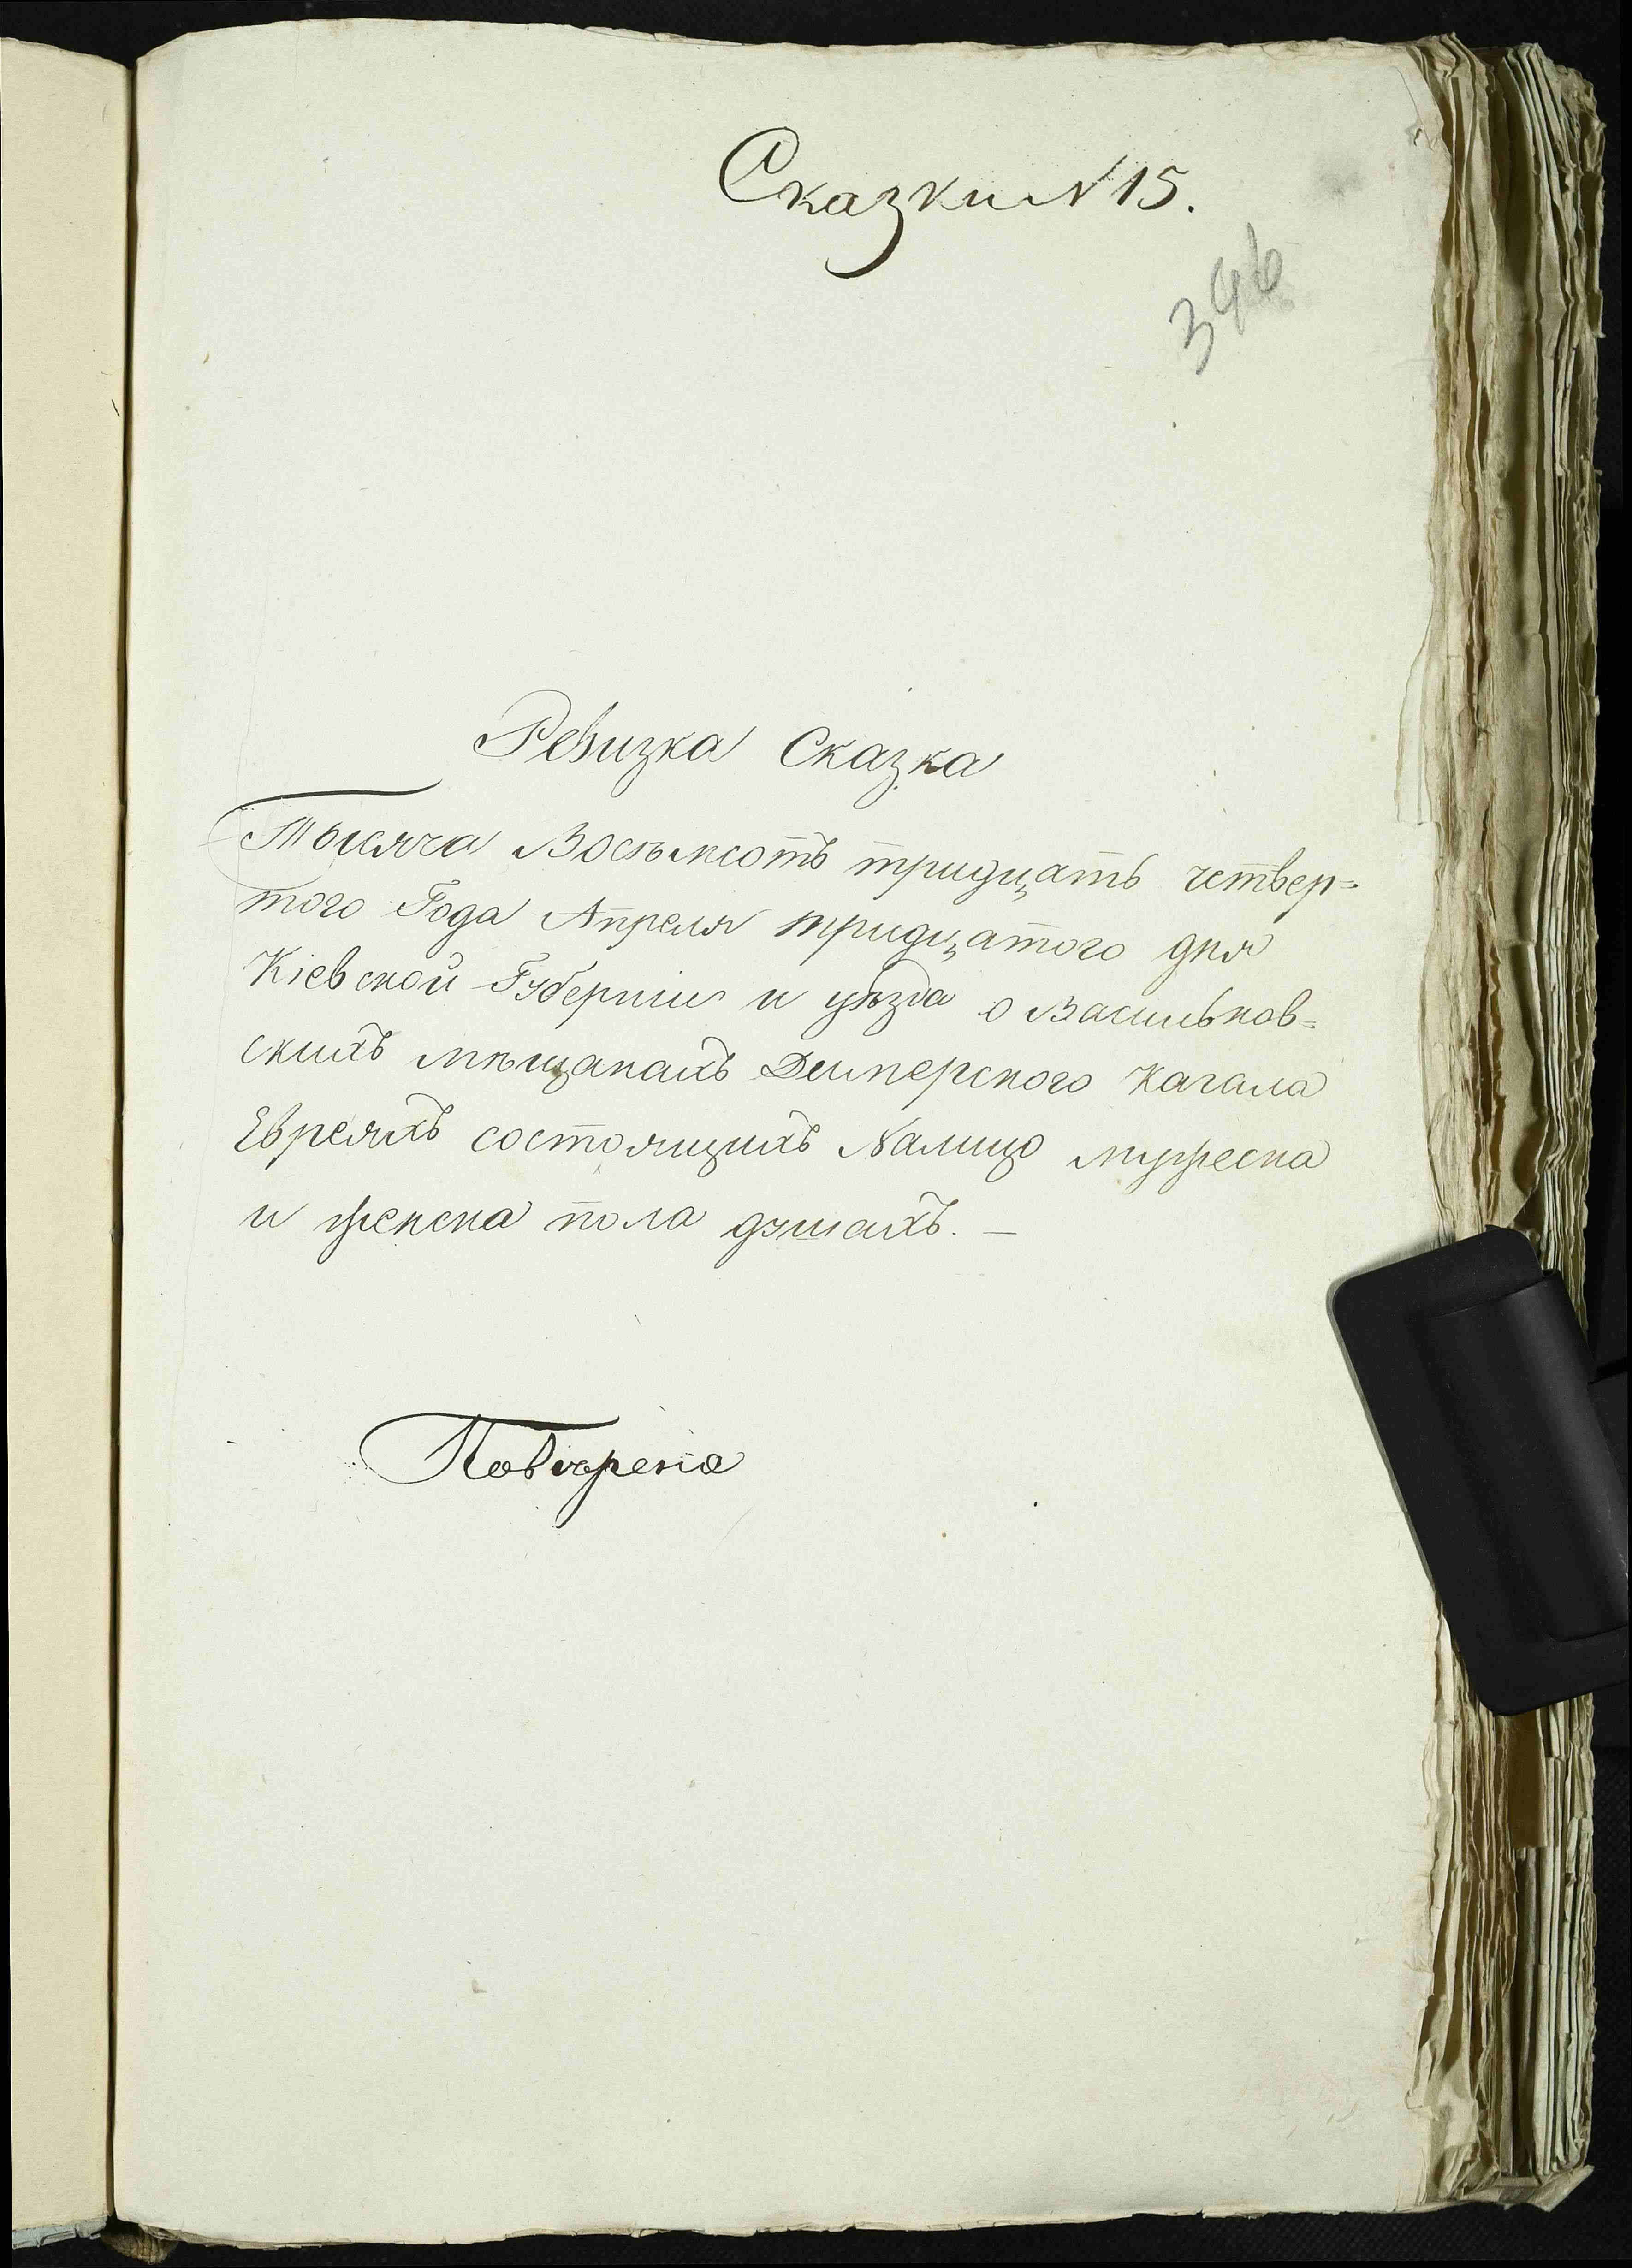 Сказки № 15.
346
Ревизка Сказка
Тысяча Восъмсотъ тридцать четвер=
того Года Апреля тридцатого дня
Кіевской Губерніи и уѣзда о Васильков=
скихъ мѣщанахъ Демперского Кагала
Евреяхъ состоящихъ Налицо мужеска
и женска пола душахъ. —